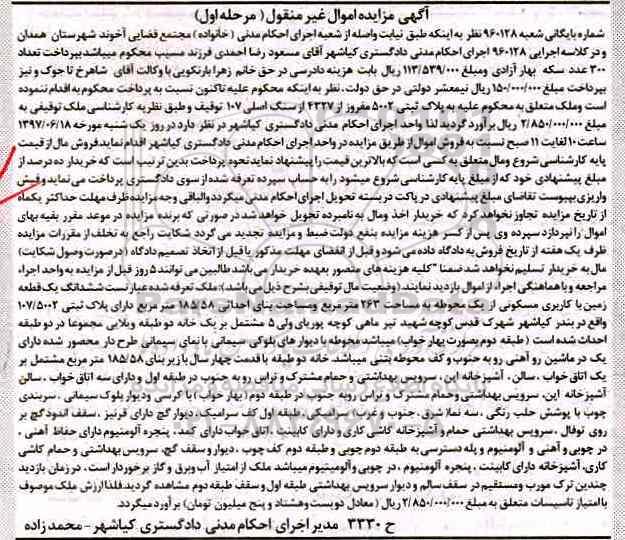 آگهی مزایده اموال غیر منقول ( مرحله اول)
شماره بایگانی شعبه ۹۶۰۱۲۸ نظر به اینکه طبق نیابت واصله از شعبه اجرای احکام مدنی ( خانواده ) مجتمع قضایی آخوند شهرستان همدان
و در کلاسه اجرایی ۹۶۰۱۲۸ اجرای احکام مدنی دادگستری کیاشهر آقای مسعود رضا احمدی فرزند مسیب محکوم میباشد بپرداخت تعداد
۳۰۰ عدد سکه بهار آزادی ومبلغ ۱۱۳/۵۳۹/۰۰۰ ریال بابت هزینه دادرسی در حق خانم زهرا بارنکویی با وکالت آقای شاهرخ تا جوک و نیز
بپرداخت مبلغ ۱۵۰/۰۰۰/۰۰۰ ریال نیمعشر دولتی در حق دولت. نظر به اینکه محکوم علیه تاکنون نسبت به پرداخت محکوم به اقدام ننموده
است وملک متعلق به محکوم علیه به پلاک ثبتی ۵۰۰۲ مفروز از ۴۳۲۷ از سنگ اصلی ۱۰۷ توقیف و طبق نظریه کارشناسی ملک توقیفی به
مبلغ ۲/۸۵۰/۰۰۰/۰۰۰ ریال برآورد گردید لذا واحد اجرای احکام مدنی دادگستری کیاشهر در نظر دارد در روز یک شنبه مورخه ۱۳۹۷/۰۶/۱۸
ساعت ۱۰ لغایت ۱۱ صبح نسبت به فروش اموال از طریق مزایده در واحد اجرای احکام مدنی دادگستری کیاشهر اقدام نماید فروش مال از قیمت
پایه کارشناسی شروع ومال متعلق به کسی است که بالاترین قیمت را پیشنهاد نماید نحوه پرداخت بدین ترتیب است که خریدار ده درصد از
مبلغ پیشنهادی خود که از مبلغ پایه کارشناسی شروع میشود را به حساب سپرده تعرفه شده از سوی دادگستری پرداخت می نماید و فیش
واریزی بپیوست تقاضای مبلغ پیشنهادی در پاکت در بسته تحویل اجرای احکام مدنی میگردد والباقی وجه مزایده ظرف مهلت حداکثر یکماه
از تاریخ مزایده تجاوز نخواهد کرد که خریدار اخذ ومال به نامبرده تحویل خواهد شد در صورتی که برنده مزایده در موعد مقرر بقیه بهای
اموال را نپردازد سپرده وی پس از کسر هزینه مزایده بنفع دولت ضبط و مزایده تجدید می گردد شکایت راجع به تخلف از مقررات مزایده
ظرف یک هفته از تاریخ فروش به دادگاه داده می شود و قبل از انقضای مهلت مذکور یا قبل از اتخاذ تصمیم دادگاه ( درصورت وصول شکایت)
مال به خریدار تسلیم نخواهد شد ضمنا "کلیه هزینه های متصور بعهده خریدار می باشد طالبین می توانند ۵ روز قبل از مزایده به واحد اجراء
مراجعه و با هماهنگی اجراء از اموال بازدید نمایند. (وضعیت مال توقیفی بشرح ذیل می باشد): ملک تعرفه شده عبارتست ششدانگ یک قطعه
زمین با کاربری مسکونی از یک محوطه به مساحت ۲۶۳ متر مربع و ساحت بنای احداثی ۱۸۵/۵۸ متر مربع دارای پلاک ثبتی ۱۰۷/۵۰۰۲
واقع در بندر کیاشهر شهرک قدس کوچه شهید تیر ماهی کوچه پوریای ولی ۵ مشتمل بر یک خانه دو طبقه ویلایی مجموعا در دو طبقه
احداث شده است ( طبقه دوم بصورت بهار خواب) میباشد محوطه با دیوار های بلوکی سیمانی با نمای سیمانی طرح دار محصور شده دارای
یک در ماشین رو آهنی رو به جنوب و کف محوطه بتنی میباشد. خانه دو طبقه با قدمت چهار سال با زیر بنای ۱۸۵/۵۸ متر مربع مشتمل بر
یک اتاق خواب . سالن . آشپز خانه اپن . سرویس بهداشتی و حمام مشترک و تراس رو به جنوب در طبقه اول و دارای سه اتاق خواب . سالن
آشپزخانه اپن. سرویس بهداشتی وحمام مشترک و تراس رو به جنوب در طبقه دوم (بهار خواب) با کرسی و دیوار بلوک سیمانی . سربندی
چوب با پوشش حلب رنگی . سه نما( شرق . جنوب و غرب) سرامیکی. طبقه اول کف سرامیک. دیوار گچ دارای قرنیز . سقف اندود گچ بر
روی توفال . سرویس بهداشتی حمام و آشپزخانه کاشی کاری و دارای کابینت . اتاق خواب دارای کمد . پنجره آلومنیوم دارای حفاظ آهنی .
در چوبی و آهنی و آلومنیوم و پله دسترسی به طبقه دوم چوبی و طبقه دوم کف چوب . دیوار و سقف گچ. سرویس بهداشتی و حمام کاشی
کاری. آشپزخانه دارای کابینت . پنجره آلومنیوم . در چوبی و آلومینیوم میباشد ملک از امتیاز آب وبرق و گاز برخوردار است . در زمان بازدید
چندین ترک مورب ومستقیم در سقف سالم و دیوار سرویس بهداشتی طبقه اول و سقف طبقه دوم مشاهده گردید. فلذا ارزش ملک موصوف
با امتیاز تاسیسات متعلق به مبلغ ۲/۸۵۰/۰۰۰/۰۰۰ ریال ( معادل دویست وهشتاد و پنج میلیون تومان) برآورد میگردد.
ح ۳۳۳۰ مدیر اجرای احکام مدنی دادگستری کیاشهر - محمد زاده